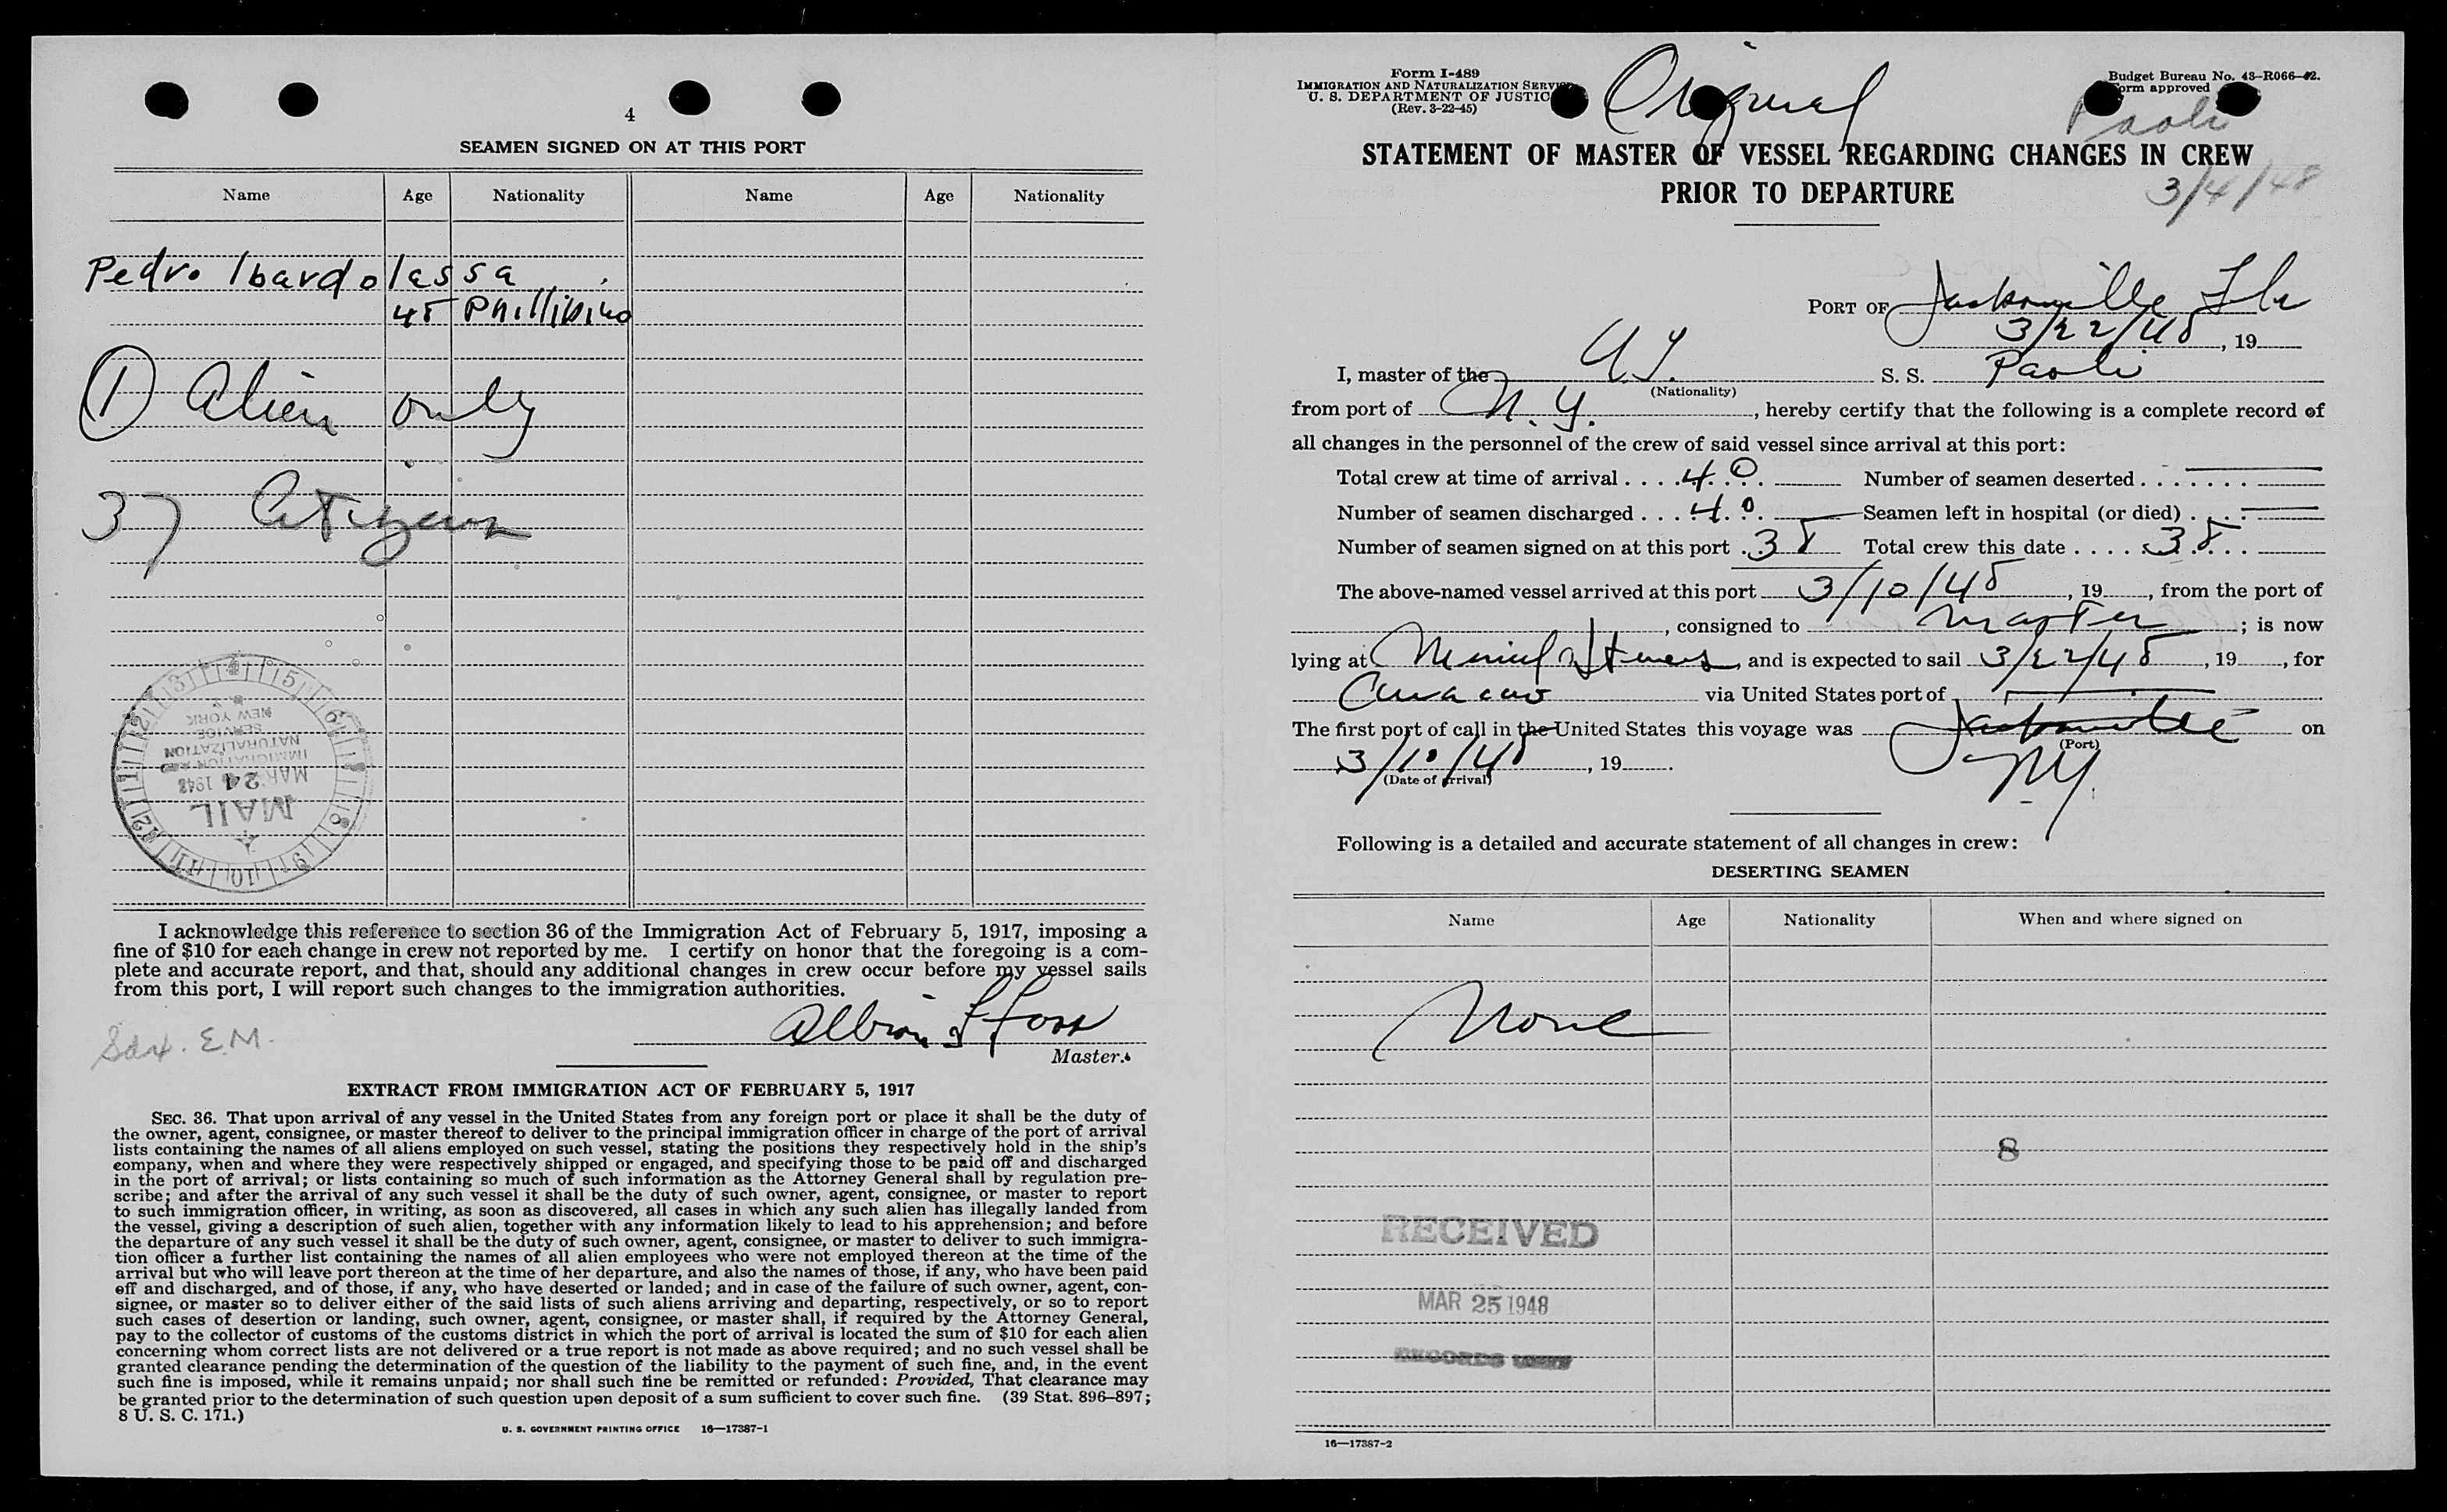 4
SEAMEN SIGNED ON AT THIS PORT
Name Age Nationality Name Age Nationality
Pedro Ibardolassa
45 Phillipino
① Alien only
37 Citizens
MAIL
MAR 24 1948
IMMIGRATION
NATURALIZATION
SERVICE
NEW YORK
I acknowledge this reference to section 36 of the Immigration Act of February 5, 1917, imposing a
fine of $10 for each change in crew not reported by me. I certify on honor that the foregoing is a com-
plete and accurate report, and that, should any additional changes in crew occur before my vessel sails
from this port, I will report such changes to the immigration authorities.
Albion F Foss
E.M.
Master.
EXTRACT FROM IMMIGRATION ACT OF FEBRUARY 5, 1917
SEC. 36. That upon arrival of any vessel in the United States from any foreign port or place it shall be the duty of
the owner, agent, consignee, or master thereof to deliver to the principal immigration officer in charge of the port of arrival
lists containing the names of all aliens employed on such vessel, stating the positions they respectively hold in the ship's
company, when and where they were respectively shipped or engaged, and specifying those to be paid off and discharged
in the port of arrival; or lists containing so much of such information as the Attorney General shall by regulation pre-
scribe; and after the arrival of any such vessel it shall be the duty of such owner, agent, consignee, or master to report
to such immigration officer, in writing, as soon as discovered, all cases in which any such alien has illegally landed from
the vessel, giving a description of such alien, together with any information likely to lead to his apprehension; and before
the departure of any such vessel it shall be the duty of such owner, agent, consignee, or master to deliver to such immigra-
tion officer a further list containing the names of all alien employees who were not employed thereon at the time of the
arrival but who will leave port thereon at the time of her departure, and also the names of those, if any, who have been paid
off and discharged, and of those, if any, who have deserted or landed; and in case of the failure of such owner, agent, con-
signee, or master so to deliver either of the said lists of such aliens arriving and departing, respectively, or so to report
such cases of desertion or landing, such owner, agent, consignee, or master shall, if required by the Attorney General,
pay to the collector of customs of the customs district in which the port of arrival is located the sum of $10 for each alien
concerning whom correct lists are not delivered or a true report is not made as above required; and no such vessel shall be
granted clearance pending the determination of the question of the liability to the payment of such fine, and, in the event
such fine is imposed, while it remains unpaid; nor shall such fine be remitted or refunded: Provided, That clearance may
be granted prior to the determination of such question upon deposit of a sum sufficient to cover such fine. (39 Stat. 896–897;
8 U. S. C. 171.)
U. S. GOVERNMENT PRINTING OFFICE 16—17387-1
Form I-489
IMMIGRATION AND NATURALIZATION SERVICE
U. S. DEPARTMENT OF JUSTICE
(Rev. 3-22-45)
Original
Budget Bureau No. 43–R066–42.
Form approved
Paoli
STATEMENT OF MASTER OF VESSEL REGARDING CHANGES IN CREW
PRIOR TO DEPARTURE
3/4/48
PORT OF Jacksonville Fla
3/22/48, 19
I, master of the S. S. Paoli
(Nationality)
from port of N. Y., hereby certify that the following is a complete record of
all changes in the personnel of the crew of said vessel since arrival at this port:
Total crew at time of arrival 40 Number of seamen deserted
Number of seamen discharged 40 Seamen left in hospital (or died)
Number of seamen signed on at this port 38 Total crew this date 38
The above-named vessel arrived at this port 3/10/48, 19, from the port of
, consigned to Master; is now
lying at and is expected to sail 3/22/48, 19, for
Curacao via United States port of
The first port of call in the United States this voyage was Jacksonville on
(Port)
NY.
3/10/48, 19.
(Date of arrival)
Following is a detailed and accurate statement of all changes in crew:
DESERTING SEAMEN
Name Age Nationality When and where signed on
None
8
RECEIVED
MAR 25 1948
RECORDS
16—17387-2